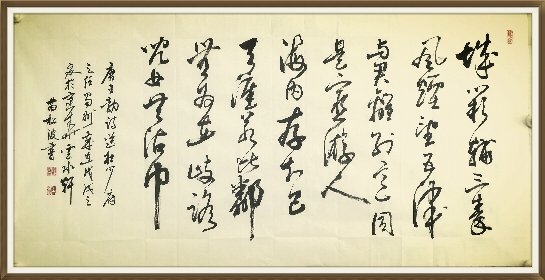 城闕輔三秦
風煙望五津
與君離別意同
是宦遊人
海内存知己
天涯若比鄰
無為在歧路
兒女共沾巾
唐王勃詩送杜少府
之任蜀州歲在戊戌之
冬於雲水軒
苗松波書